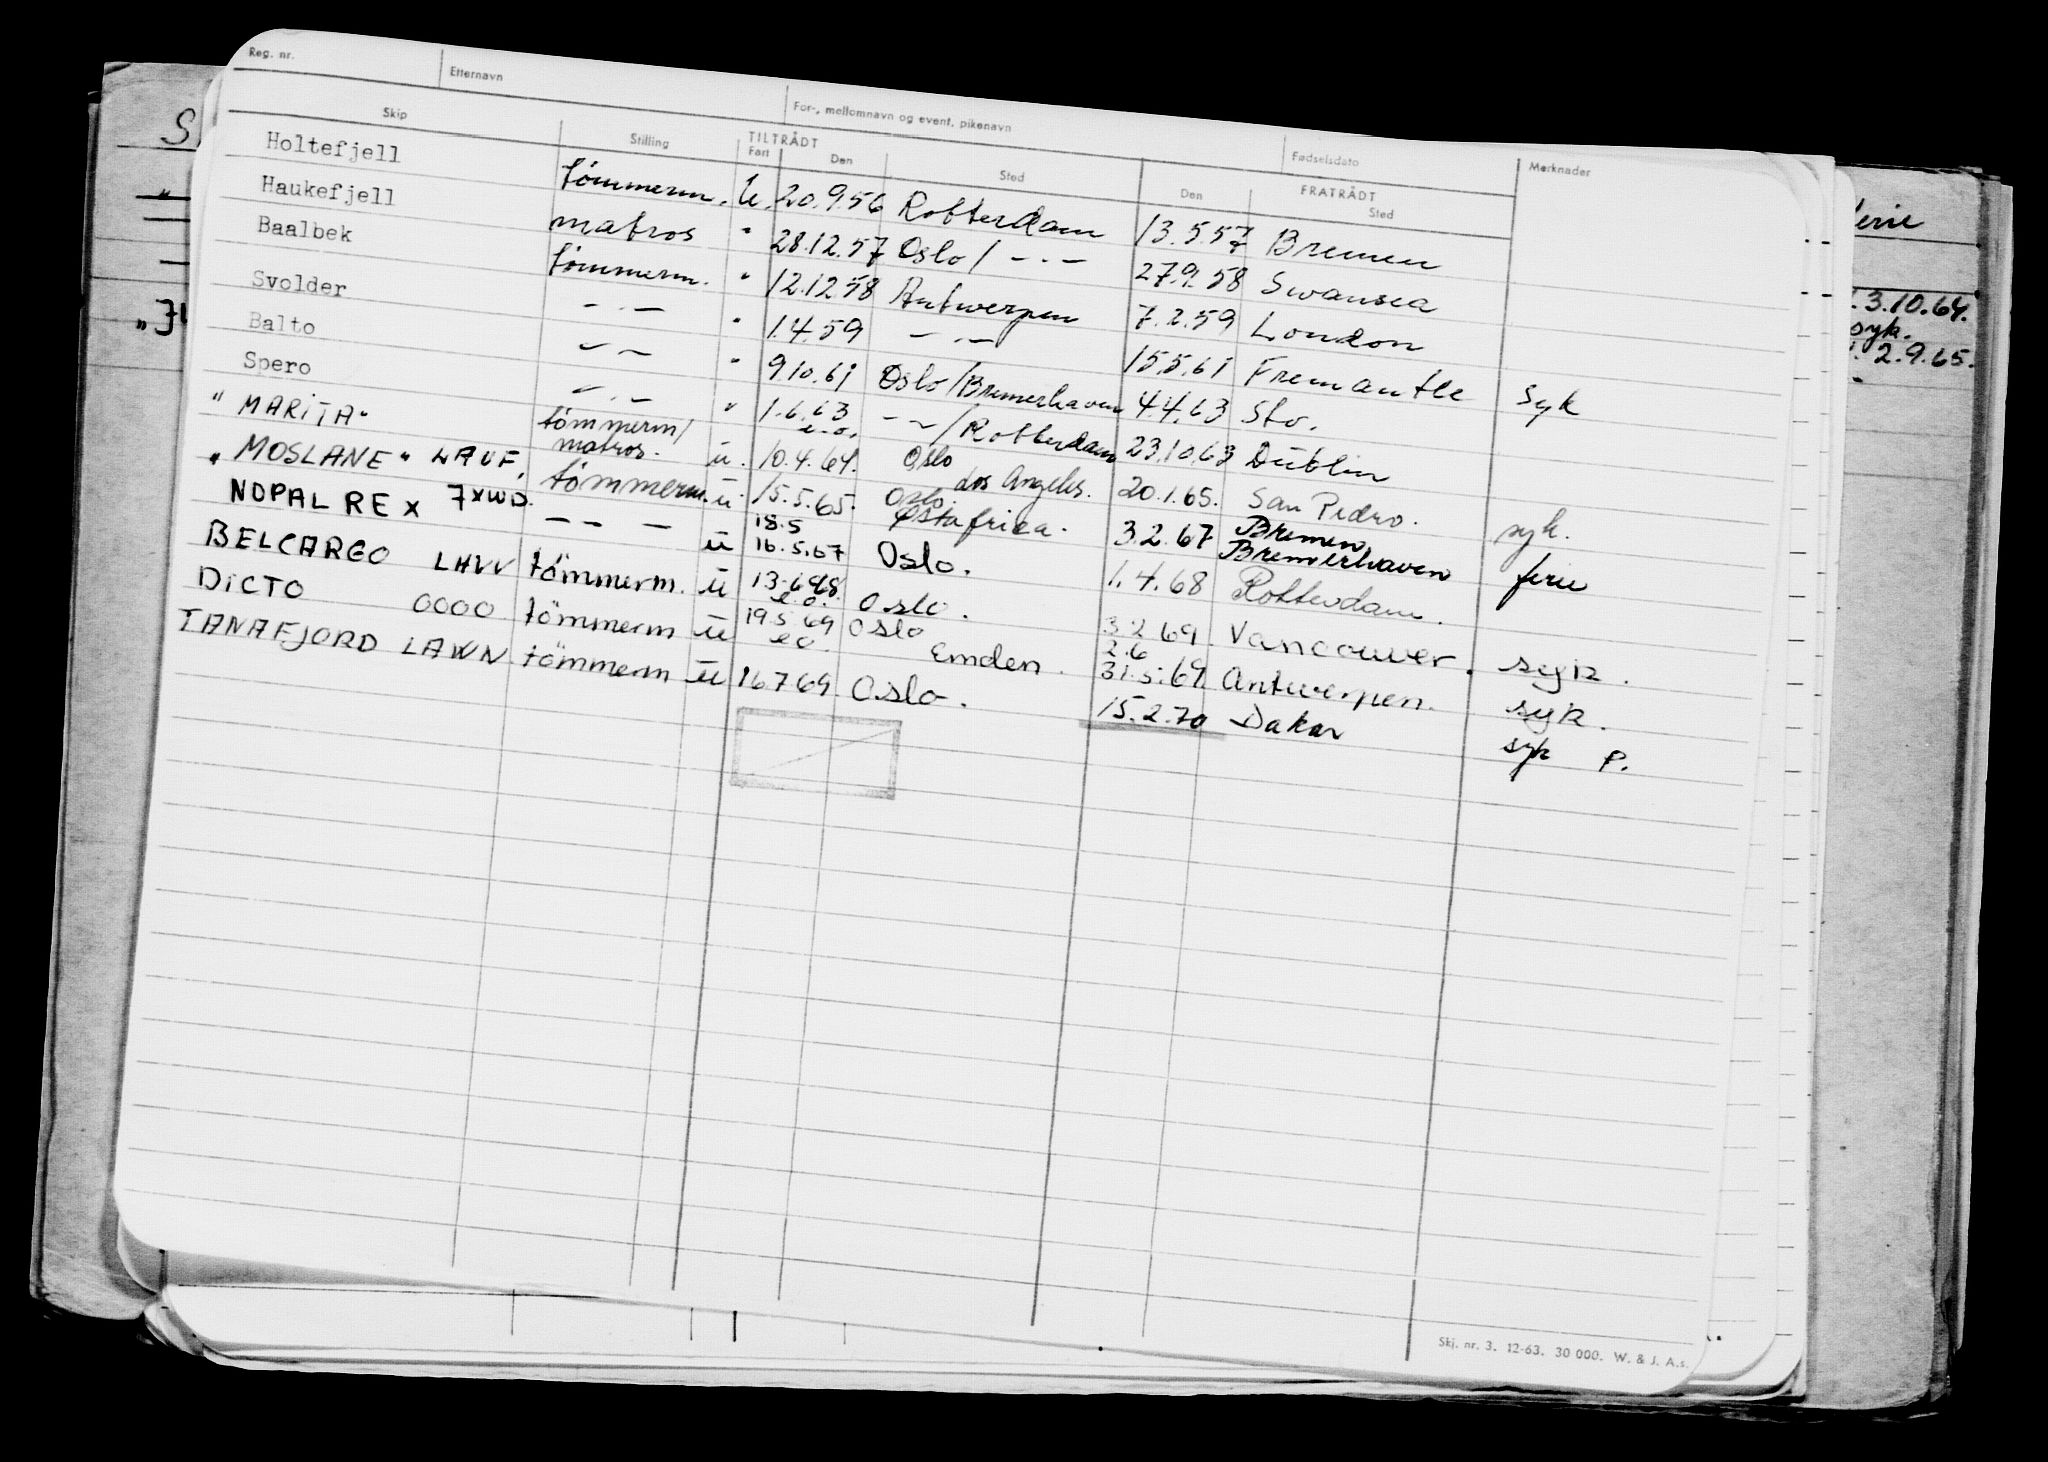 Reg. nr. Etternavn For-, mellomnavn og event. pikenavn Fødselsdato Merknader
Skip Stilling TILTRÅDT Fart Den Sted FRATRÅDT Den Sted
Holtefjell tömmerm. u. 20.9.56 Rotterdam 13.5.57 Bremen
Haukefjell matros " 28.12.57 Oslo / -.- 27.9.58 Swansea
Baalbek tömmerm. " 12.12.58 Antwerpen 7.2.59 London
Svolder -.- " 1.4.59 -.- 15.5.61 Fremantle syk
Balto -.- " 9.10.61 Oslo/Bremerhaven 4.4.63 Sto.
Spero -.- " 1.6.63 e.o. -"-/Rotterdam 23.10.63 Dublin
"MARITA" tömmerm/ matros. ü. 10.4.64. Oslo Los Angeles. 20.1.65. San Pedro. syk.
"MOSLANE" LAUF. tömmerm. ü. 15.5.65. Oslo. Östafrica. 3.2.67 Bremen Bremerhaven ferie
NOPAL REX 7XWD. - - - ü 18.5 16.5.67 Oslo. 1.4.68 Rotterdam.
BELCARGO LHVV tömmerm. ü 13.6.68. e.o. Oslo. 3.2.69. Vancouver. syk.
DICTO OOOO tömmerm ü 19.5 69 e.o. Oslo Emden. 2.6 31.5.69. Antwerpen. syk.
TANAFJORD LAWN tömmerm ü 16.7.69 Oslo. 15.2.70 Dakar syk P.
erie
3.10.64.
syk.
2.9.65.
Skj. nr. 3. 12-63. 30 000. W. & J. A.s.